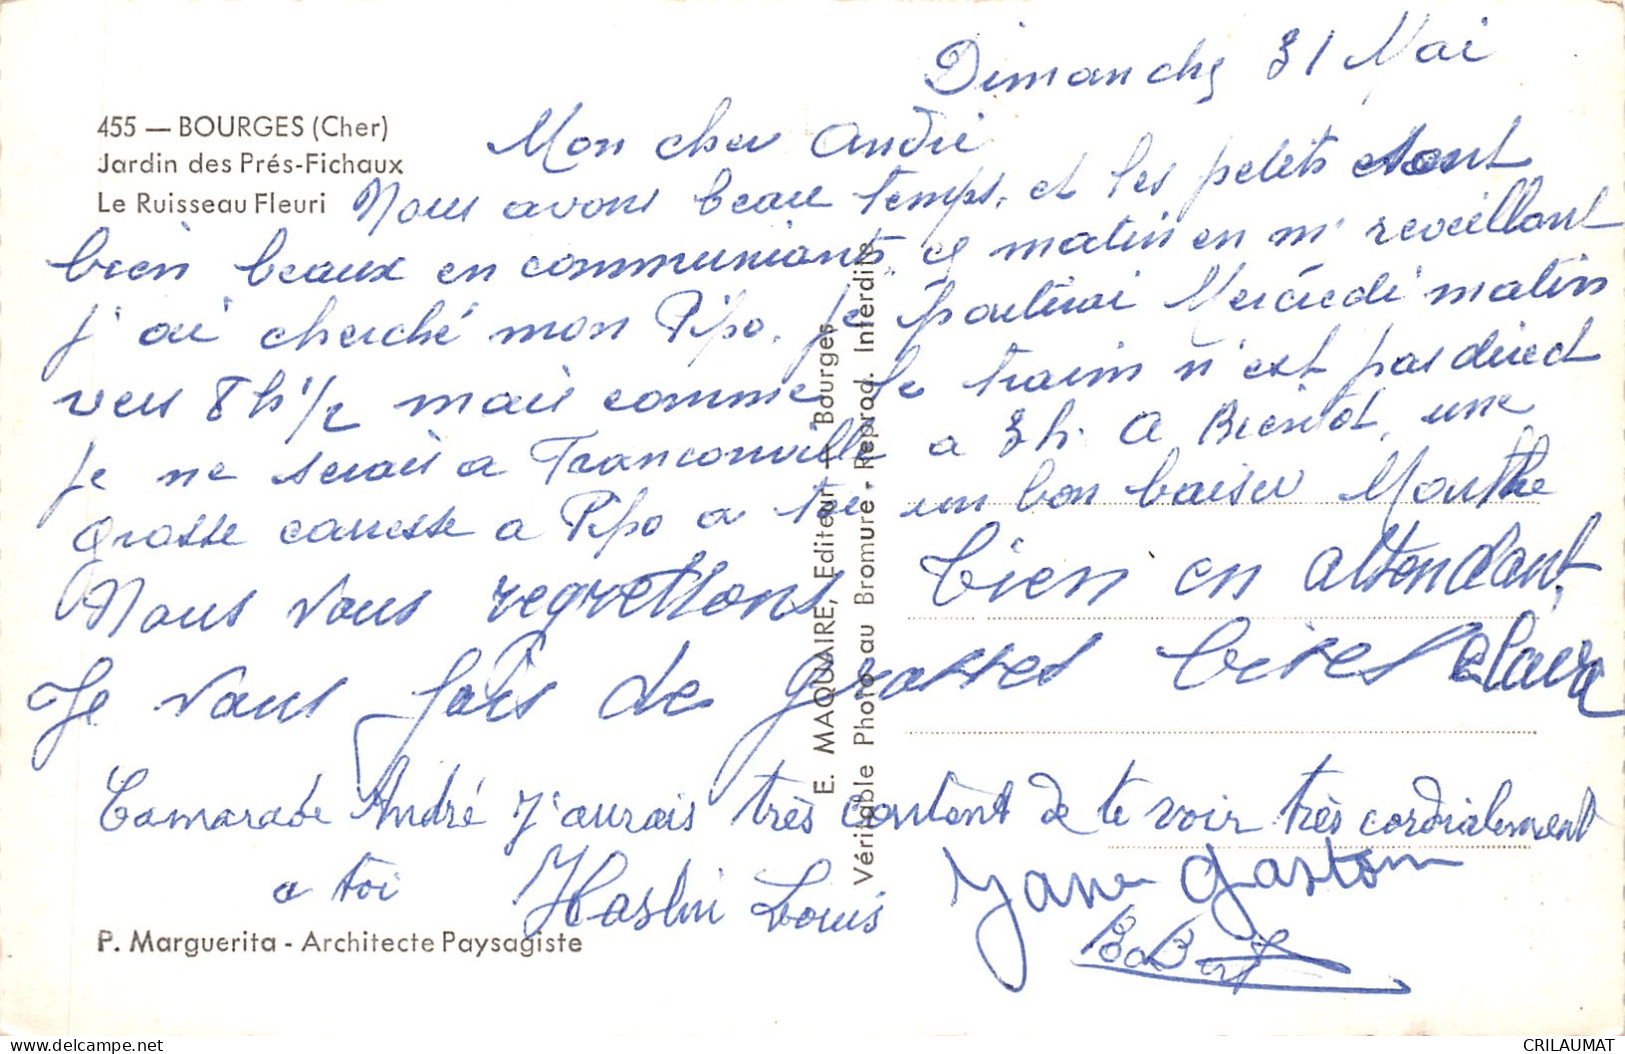 Dimanche 31 Mai
455 — BOURGES (Cher)
Jardin des Prés-Fichaux
Le Ruisseau Fleuri
Mon cher André
Nous avons beau temps, et les petits etaient
bien beaux en communiants, ce matin en m'reveillant
j'ai cherché mon Pipo. je partirai Mercredi matin
vers 8h1/2 mais comme le train n'est pas direct
je ne serais a Franconville a 3h. A Bientot, une
grosse caresse a Pipo a toi un bon baiser Marthe
Nous vous regrettons bien en attendant,
Je vous fais de grosses bises Claire
Camarade André J'aurais très content de te voir très cordialement
a toi Haslin Louis
Gaston
Robert
P. Marguerita - Architecte Paysagiste
E. MAQUAIRE, Editeur — Bourges
Véritable Photo au Bromure - Reprod. Interdite
delcampe.net
CRILAUMAT